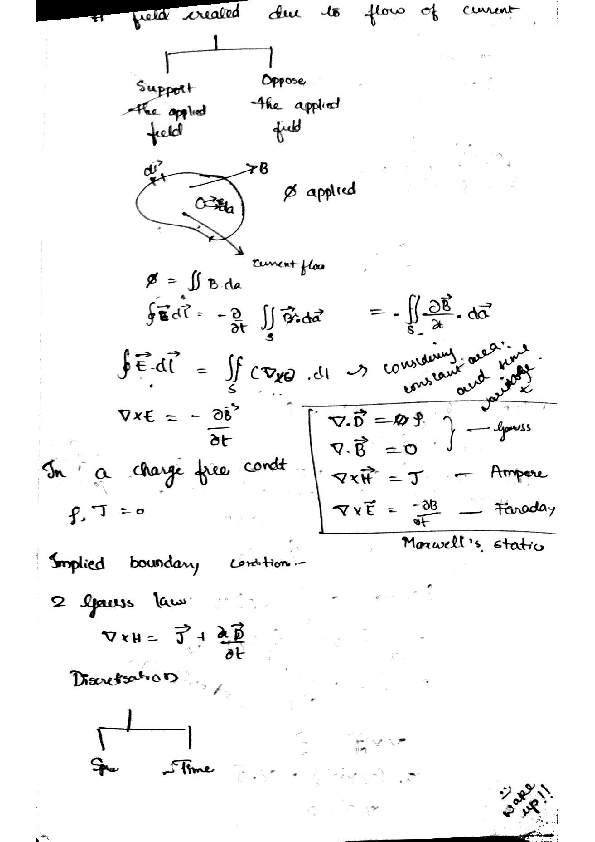 # field created due to flow of current
Support
the applied
field
Oppose
the applied
field
dl
B
da
Ø applied
current flow
Ø = ∬ B.da
∮E⃗.dl⃗ = -∂/∂t ∬_S B⃗.da⃗ = -∬_S ∂B⃗/∂t . da⃗
∮E⃗.dl⃗ = ∬_S (∇×E).dl → considering
constant area.
and time
variable
t
∇×E = -∂B⃗/∂t
∇.D⃗ = ρ
∇.B⃗ = 0
Gauss
∇×H⃗ = J — Ampere
∇×E⃗ = -∂B/∂t — Faraday
Maxwell's static
In a charge free condt
ρ, J = 0
Implied boundary condition:-
2 Gauss law
∇×H = J⃗ + ∂D⃗/∂t
Discretisation
Time
wake
up!!